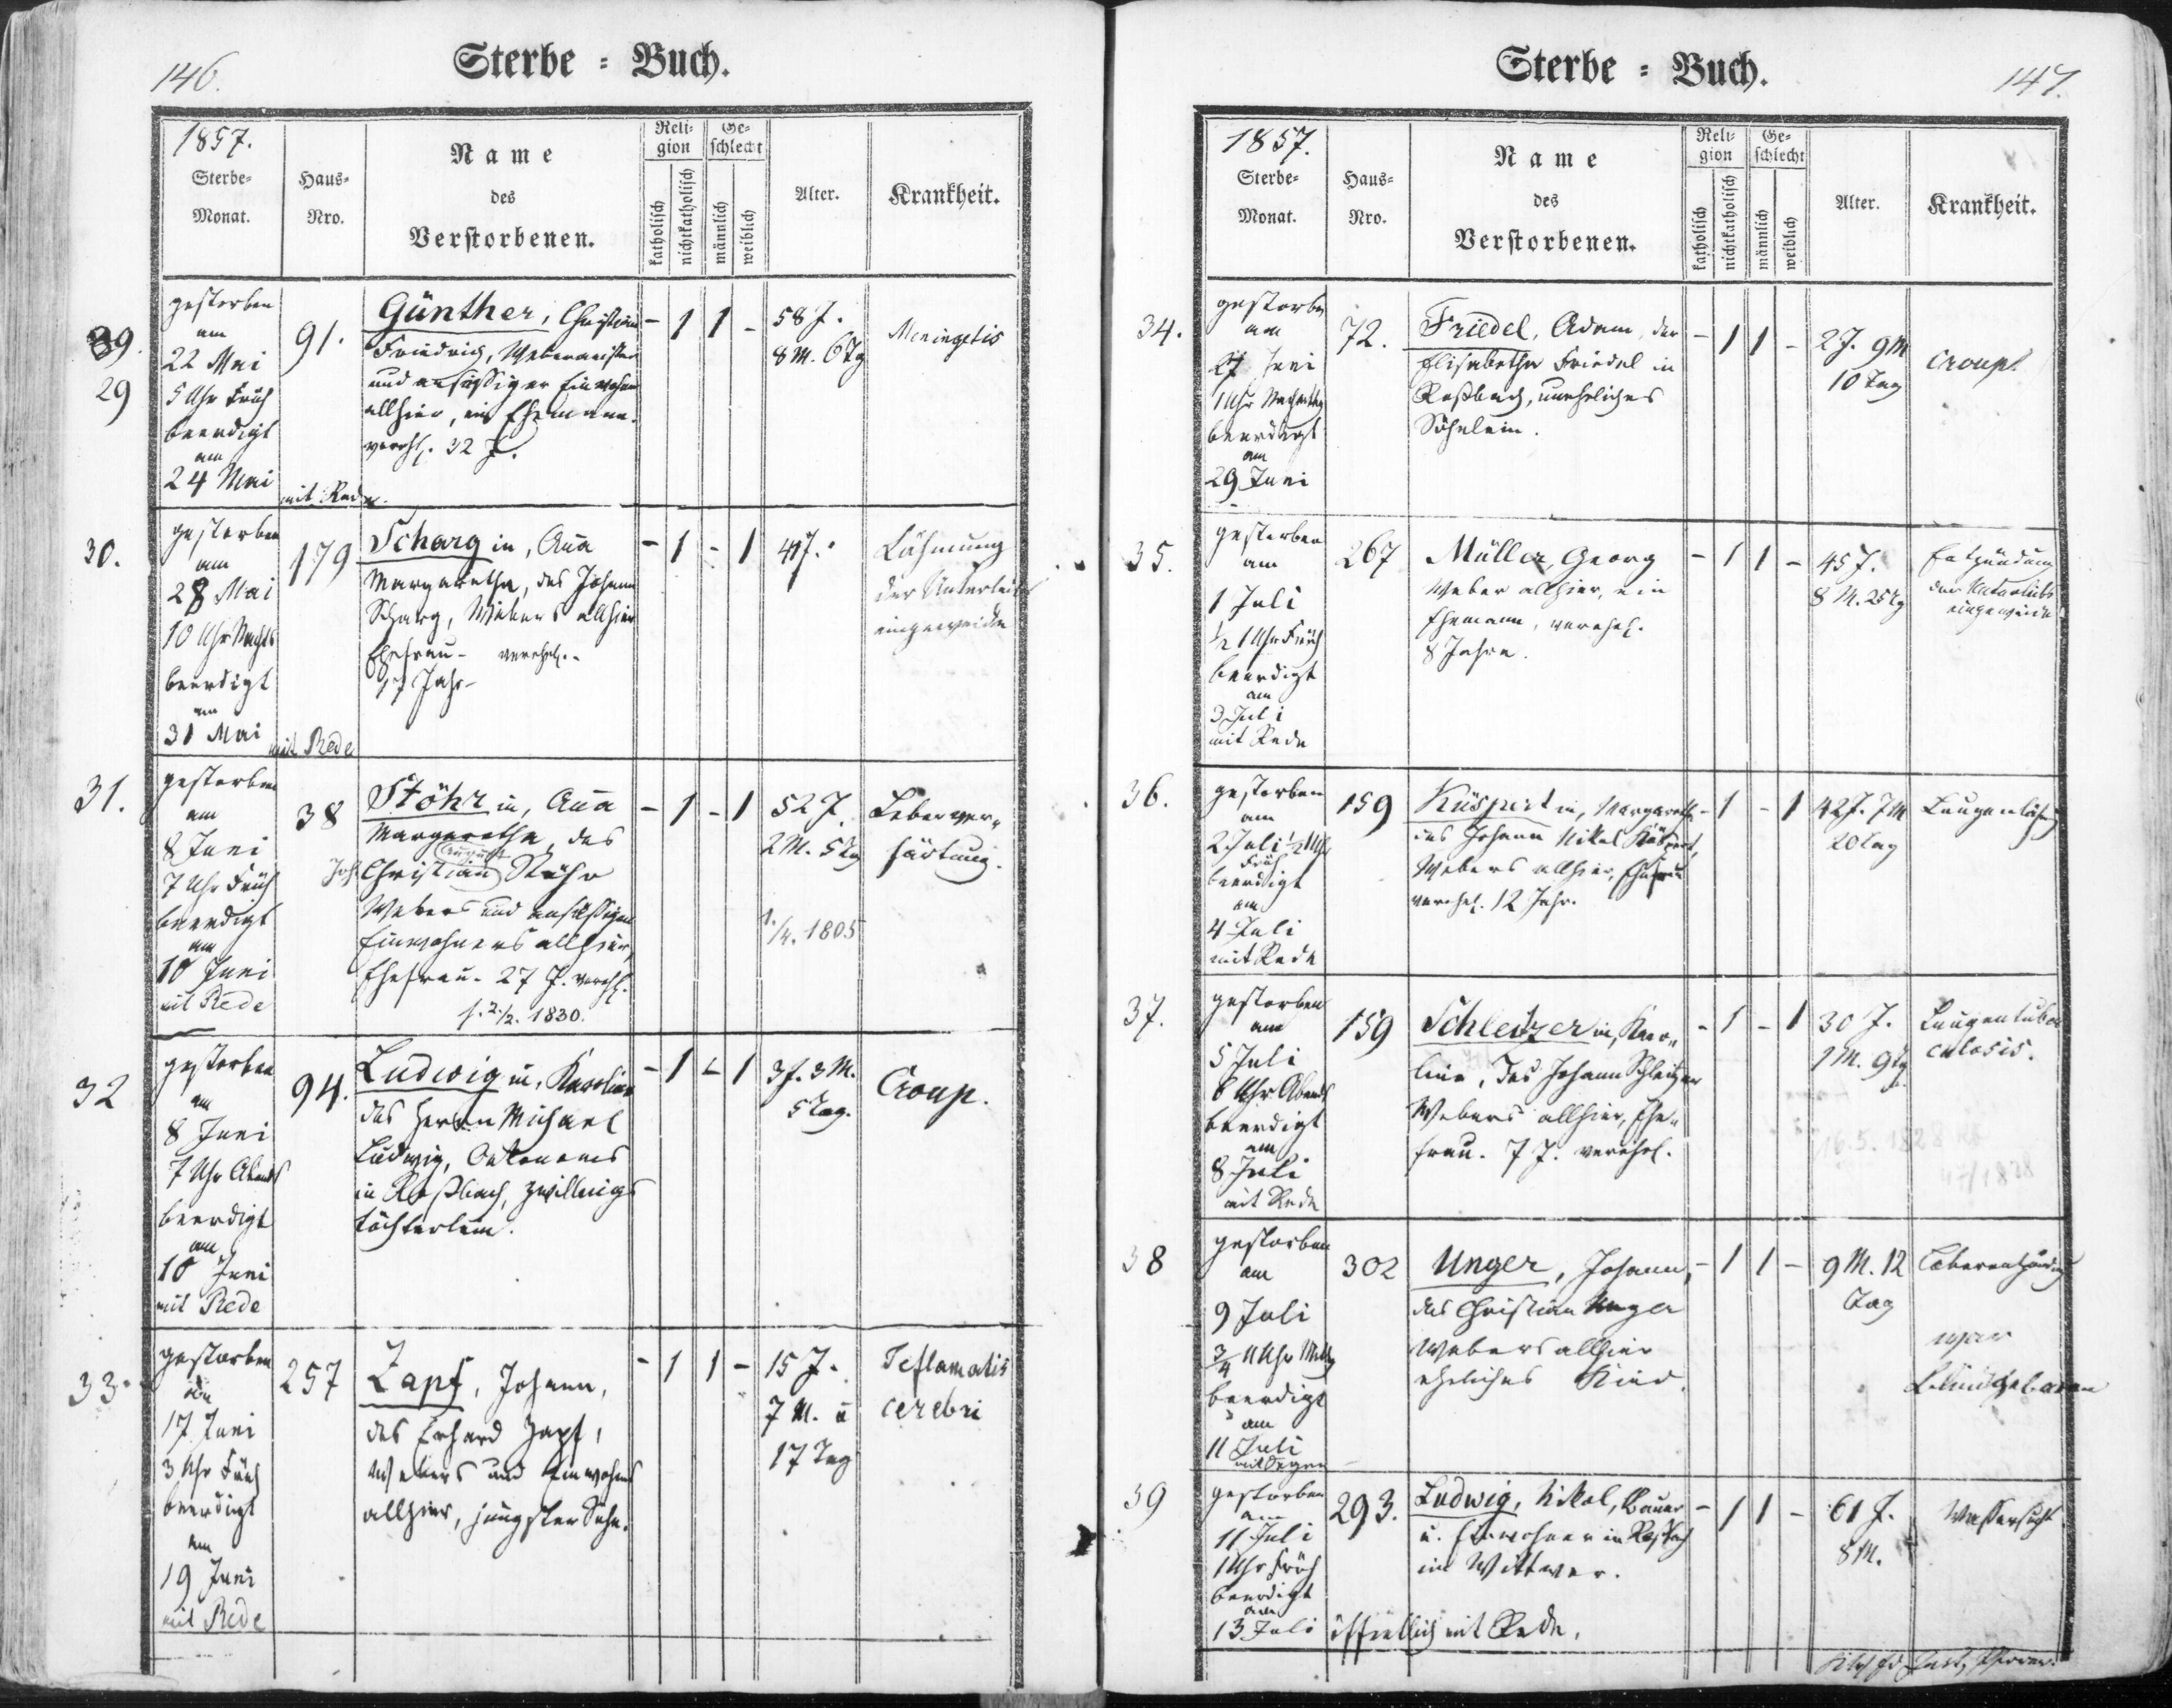 146.
Sterbe = Buch.
1857.
Sterbe-
Monat.
Haus-
Nro.
Name
des
Verstorbenen.
Reli-
gion
katholisch
nichtkatholisch
Ge-
schlecht
männlich
weiblich
Alter.
Krankheit.
39.
29
gestorben
am
22 Mai
5 Uhr Früh
beerdigt
am
24 Mai
mit Rede.
91.
Günther, Christian
Friedrich, Webermeister
und ansässiger Einwohner
allhier, ein Ehemann.
verehl. 32 J.
- 1 1 -
58 J.
8 M. 6 Tg
Meningetis
30.
gestorben
am
28 Mai
10 Uhr Nachts
beerdigt
am
31 Mai
mit Rede
179
Scharg in, Anna
Margaretha, des Johann
Scharg, Webers allhier
Ehefrau - verehel.
17 Jahr
- 1 - 1
47 J.
Lähmung
der Unterleibs
eingeweide
31.
gestorben
am
8 Juni
7 Uhr Früh
beerdigt
am
10 Juni
mit Rede
38
Stöhr in, Anna
Margaretha, des
August
Joh. Christian Stöhr
Webers und ansässigen
Einwohners allhier,
Ehefrau. 27 J. verehl.
s. 2./2. 1830.
- 1 - 1
52 J.
2 M. 5 Tg
1./4. 1805
Leberver-
härtung.
32
gestorben
am
8 Juni
7 Uhr Abends
beerdigt
am
10 Juni
mit Rede
94.
Ludwig in, Karoline
des Herrn Michael
Ludwig, Oekonoms
in Roßbach, Zwillings
töchterlein.
- 1 - 1
3 J. 3 M.
5 Tag.
Croup.
33.
gestorben
am
17 Juni
3 Uhr Früh
beerdigt
am
19 Juni
mit Rede
257
Zapf, Johann,
des Erhard Zapf,
Webers und Einwohners
allhier, jüngster Sohn.
- 1 1 -
15 J.
7 M. u
17 Tag
cerebri
Sterbe = Buch.
147.
1857.
Sterbe-
Monat.
Haus-
Nro.
Name
des
Verstorbenen.
Reli-
gion
katholisch
nichtkatholisch
Ge-
schlecht
männlich
weiblich
Alter.
Krankheit.
34.
gestorben
am
27 Juni
1 Uhr Nachmittag
beerdigt
am
29 Juni
72.
Friedel, Adam, der
Elisabetha Friedel in
Roßbach, unehliches
Söhnlein.
- 1 1 -
2 J. 9 M
10 Tag
Croup.
35.
gestorben
am
1 Juli
½ 1 Uhr Früh
beerdigt
am
3 Juli
mit Rede
267
Müller, Georg
Weber allhier, ein
Ehemann, verehel.
8 Jahre.
- 1 1 -
45 J.
8 M. 25 Tg
Entzündung
der Unterleibs
eingeweide
36.
gestorben
am
2 Juli ½ 1 Uhr
Früh
beerdigt
am
4 Juli
mit Rede
159
Küspert in, Margareth
des Johann Nikol Küspert,
Webers allhier, Ehefrau
verehel. 12 Jahr.
- 1 - 1
42 J. 7 M
20 Tag
37.
gestorben
am
5 Juli
6 Uhr Abends
beerdigt
am
8 Juli
mit Rede
159
Schleitzer in, Karo-
line, des Johann Schleitzer
Webers allhier, Ehe-
frau. 7 J. verehel.
- 1 - 1
30 J.
1 M. 9 Tg
16.5. 1828
Lungentuber
culosis.
38
gestorben
am
9 Juli
¾ 11 Uhr Mittg
beerdigt
am
11 Juli
mit Segen
302
Unger, Johann,
des Christian Unger
Webers allhier
eheliches Kind.
- 1 1 -
9 M. 12
Tag
war
Blindgeboren
39
gestorben
am
11 Juli
1 Uhr Früh
beerdigt
am
13 Juli öffentlich mit Rede.
293.
Ludwig, Nikol, Bauer
u. Einwohner in Roßbach
ein Wittwer.
- 1 1 -
61 J.
8 M.
Wassersucht